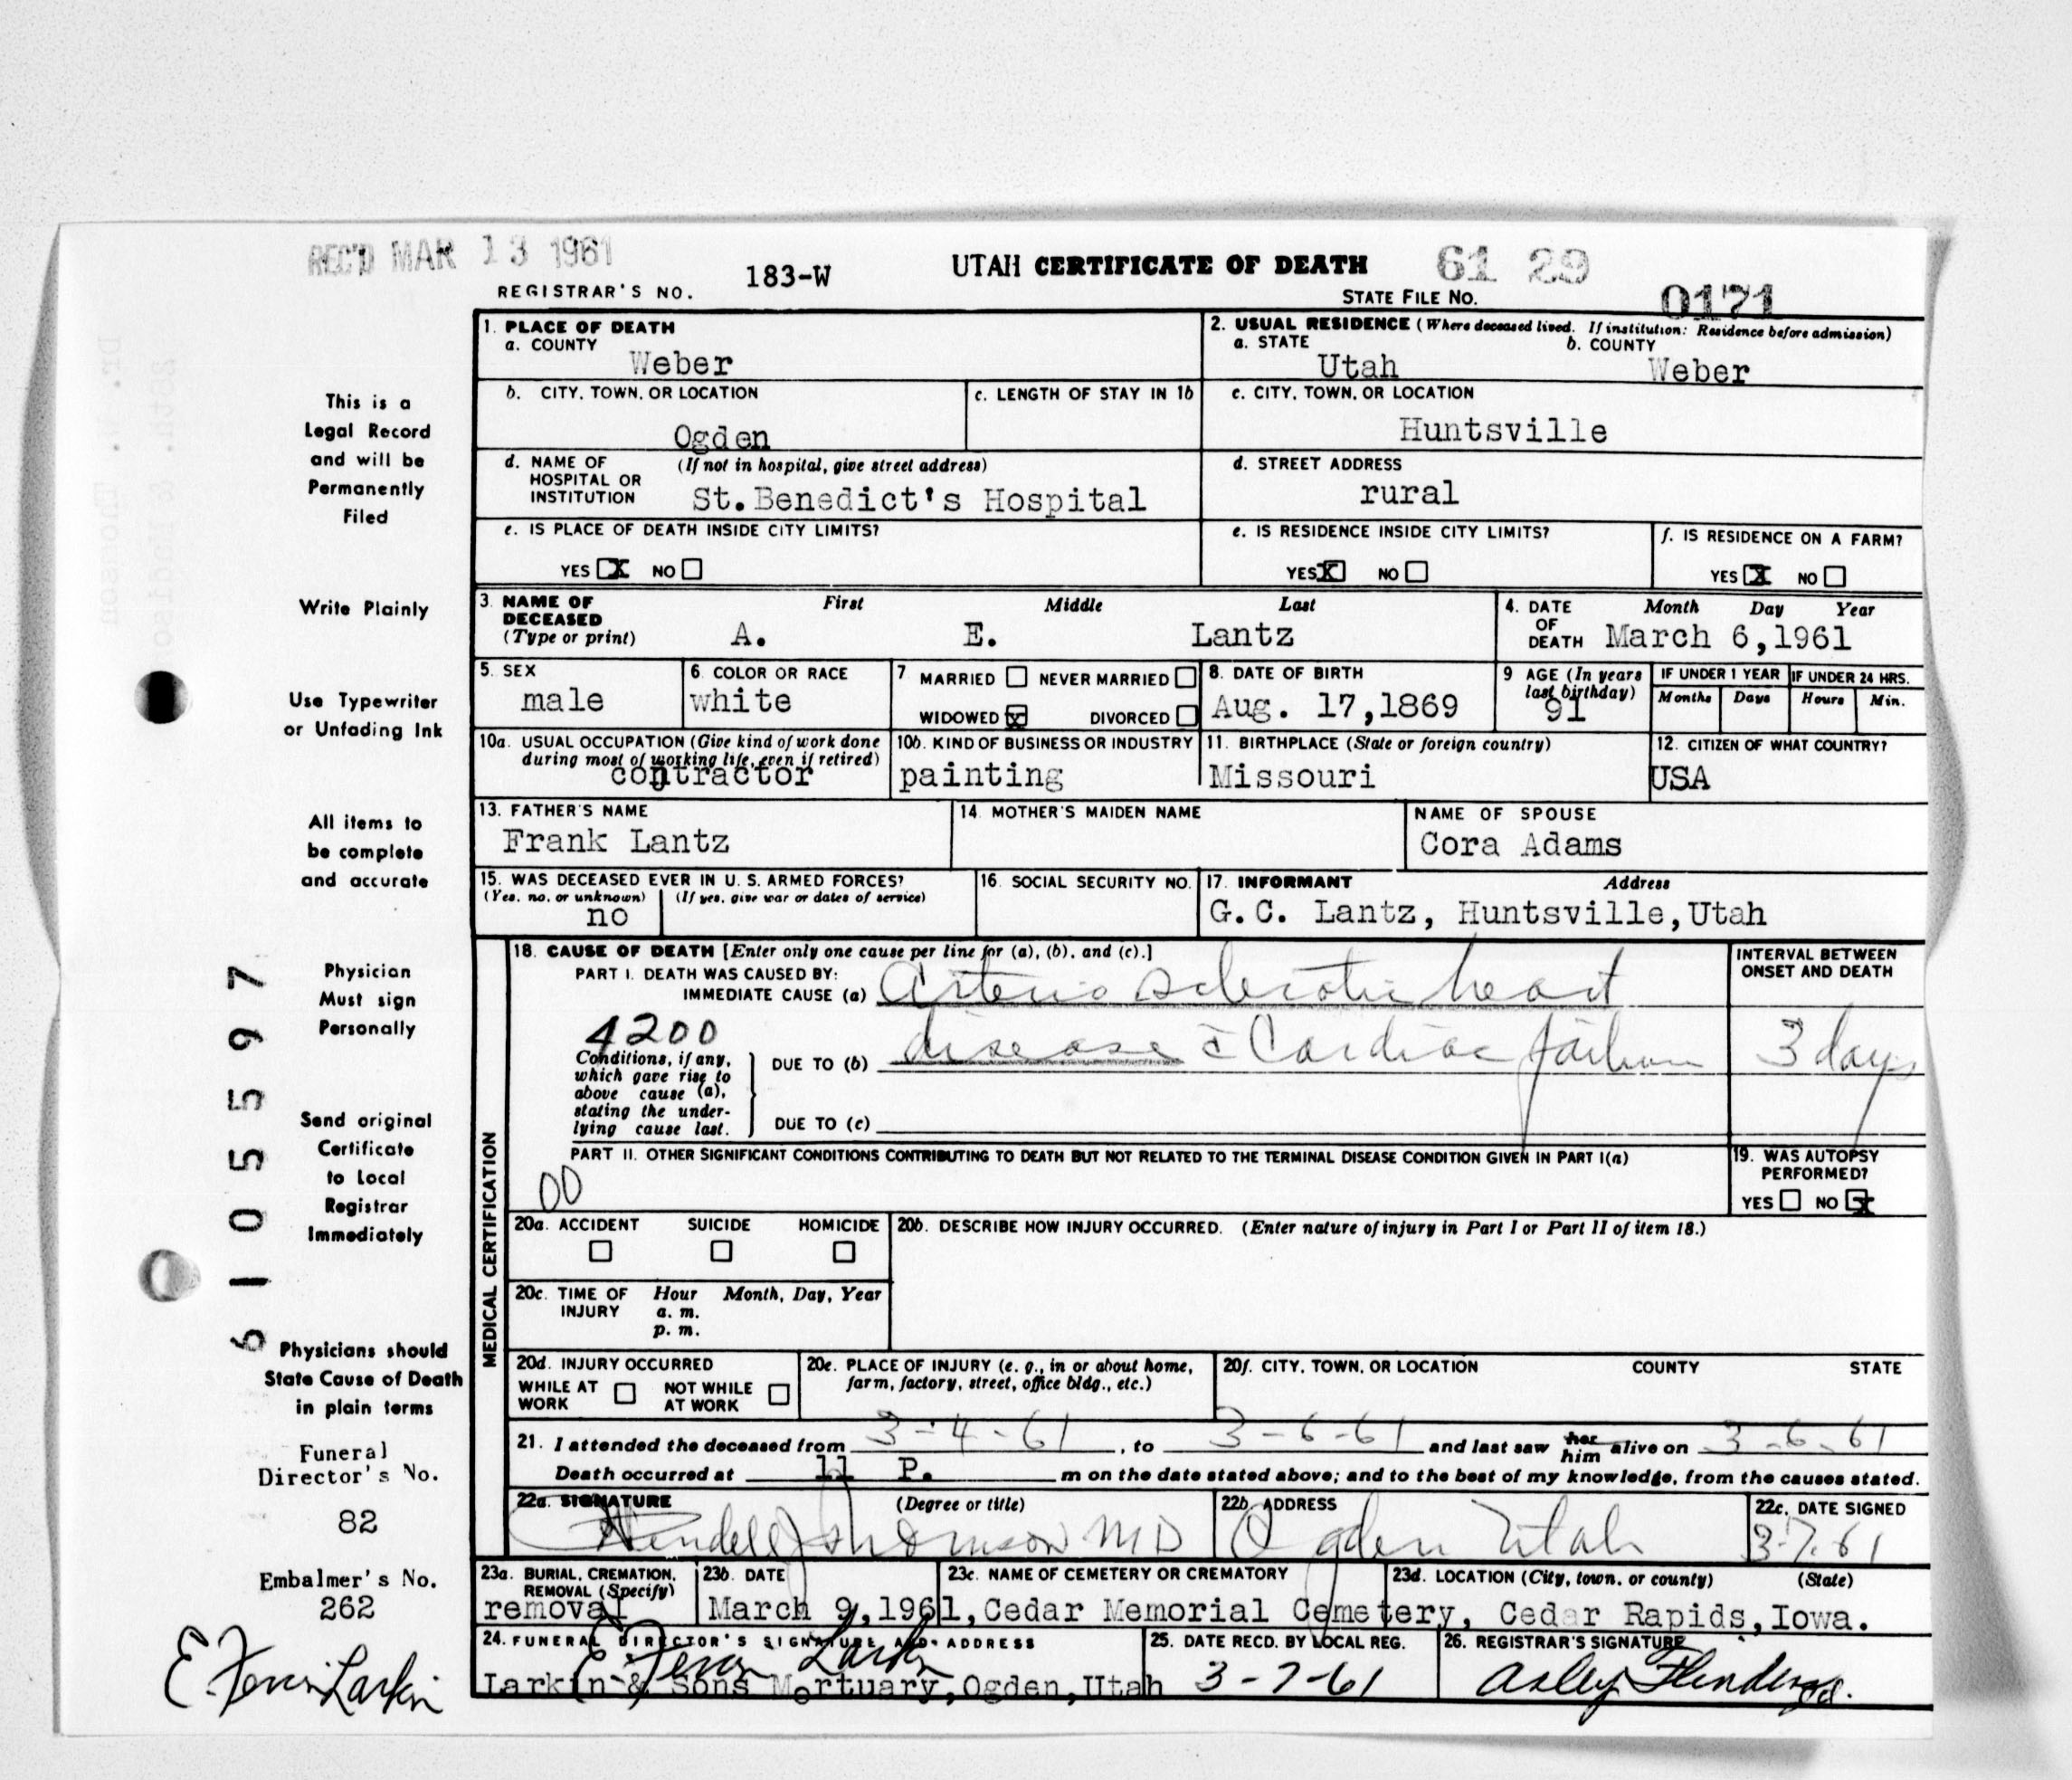 REC'D MAR 13 1961
REGISTRAR'S NO. 183-W
UTAH CERTIFICATE OF DEATH
61 29
STATE FILE NO. 0171
This is a
Legal Record
and will be
Permanently
Filed
Write Plainly
Use Typewriter
or Unfading Ink
All items to
be complete
and accurate
Physician
Must sign
Personally
Send original
Certificate
to Local
Registrar
Immediately
Physicians should
State Cause of Death
in plain terms
Funeral
Director's No.
82
Embalmer's No.
262
E. Feron Larkin
61055597
1. PLACE OF DEATH
a. COUNTY
Weber
2. USUAL RESIDENCE (Where deceased lived. If institution: Residence before admission)
a. STATE b. COUNTY
Utah Weber
b. CITY, TOWN, OR LOCATION
Ogden
c. LENGTH OF STAY IN 1b
c. CITY, TOWN, OR LOCATION
Huntsville
d. NAME OF HOSPITAL OR INSTITUTION (If not in hospital, give street address)
St.Benedict's Hospital
d. STREET ADDRESS
rural
e. IS PLACE OF DEATH INSIDE CITY LIMITS?
YES X NO
e. IS RESIDENCE INSIDE CITY LIMITS?
YES X NO
f. IS RESIDENCE ON A FARM?
YES X NO
3. NAME OF DECEASED (Type or print) First Middle Last
A. E. Lantz
4. DATE OF DEATH Month Day Year
March 6,1961
5. SEX
male
6. COLOR OR RACE
white
7 MARRIED NEVER MARRIED
WIDOWED X DIVORCED
8. DATE OF BIRTH
Aug. 17,1869
9 AGE (In years last birthday)
91
IF UNDER 1 YEAR IF UNDER 24 HRS.
Months Days Hours Min.
10a. USUAL OCCUPATION (Give kind of work done during most of working life, even if retired)
contractor
10b. KIND OF BUSINESS OR INDUSTRY
painting
11. BIRTHPLACE (State or foreign country)
Missouri
12. CITIZEN OF WHAT COUNTRY?
USA
13. FATHER'S NAME
Frank Lantz
14. MOTHER'S MAIDEN NAME
NAME OF SPOUSE
Cora Adams
15. WAS DECEASED EVER IN U. S. ARMED FORCES?
(Yes, no, or unknown) (If yes, give war or dates of service)
no
16. SOCIAL SECURITY NO.
17. INFORMANT Address
G.C. Lantz, Huntsville,Utah
MEDICAL CERTIFICATION
18. CAUSE OF DEATH [Enter only one cause per line for (a), (b), and (c).]
PART I. DEATH WAS CAUSED BY:
IMMEDIATE CAUSE (a) Arterio sclerotic heart
4200
Conditions, if any, which gave rise to above cause (a), stating the underlying cause last.
DUE TO (b) disease c̄ Cardiac failure
DUE TO (c)
INTERVAL BETWEEN ONSET AND DEATH
3 days
PART II. OTHER SIGNIFICANT CONDITIONS CONTRIBUTING TO DEATH BUT NOT RELATED TO THE TERMINAL DISEASE CONDITION GIVEN IN PART I(a)
00
19. WAS AUTOPSY PERFORMED?
YES NO X
20a. ACCIDENT SUICIDE HOMICIDE
20b. DESCRIBE HOW INJURY OCCURRED. (Enter nature of injury in Part I or Part II of item 18.)
20c. TIME OF INJURY Hour Month, Day, Year
a. m.
p. m.
20d. INJURY OCCURRED
WHILE AT WORK NOT WHILE AT WORK
20e. PLACE OF INJURY (e. g., in or about home, farm, factory, street, office bldg., etc.)
20f. CITY, TOWN, OR LOCATION COUNTY STATE
21. I attended the deceased from 3-4-61, to 3-6-61 and last saw her him alive on 3-6-61
Death occurred at 11 P. m on the date stated above; and to the best of my knowledge, from the causes stated.
22a. SIGNATURE (Degree or title)
Wendell J Thomson MD
22b. ADDRESS
Ogden Utah
22c. DATE SIGNED
3-7-61
23a. BURIAL, CREMATION, REMOVAL (Specify)
removal
23b. DATE
March 9,1961,
23c. NAME OF CEMETERY OR CREMATORY
Cedar Memorial Cemetery,
23d. LOCATION (City, town, or county) (State)
Cedar Rapids,Iowa.
24. FUNERAL DIRECTOR'S SIGNATURE AND ADDRESS
E. Feron Larkin
Larkin & Sons Mortuary,Ogden,Utah
25. DATE RECD. BY LOCAL REG.
3-7-61
26. REGISTRAR'S SIGNATURE